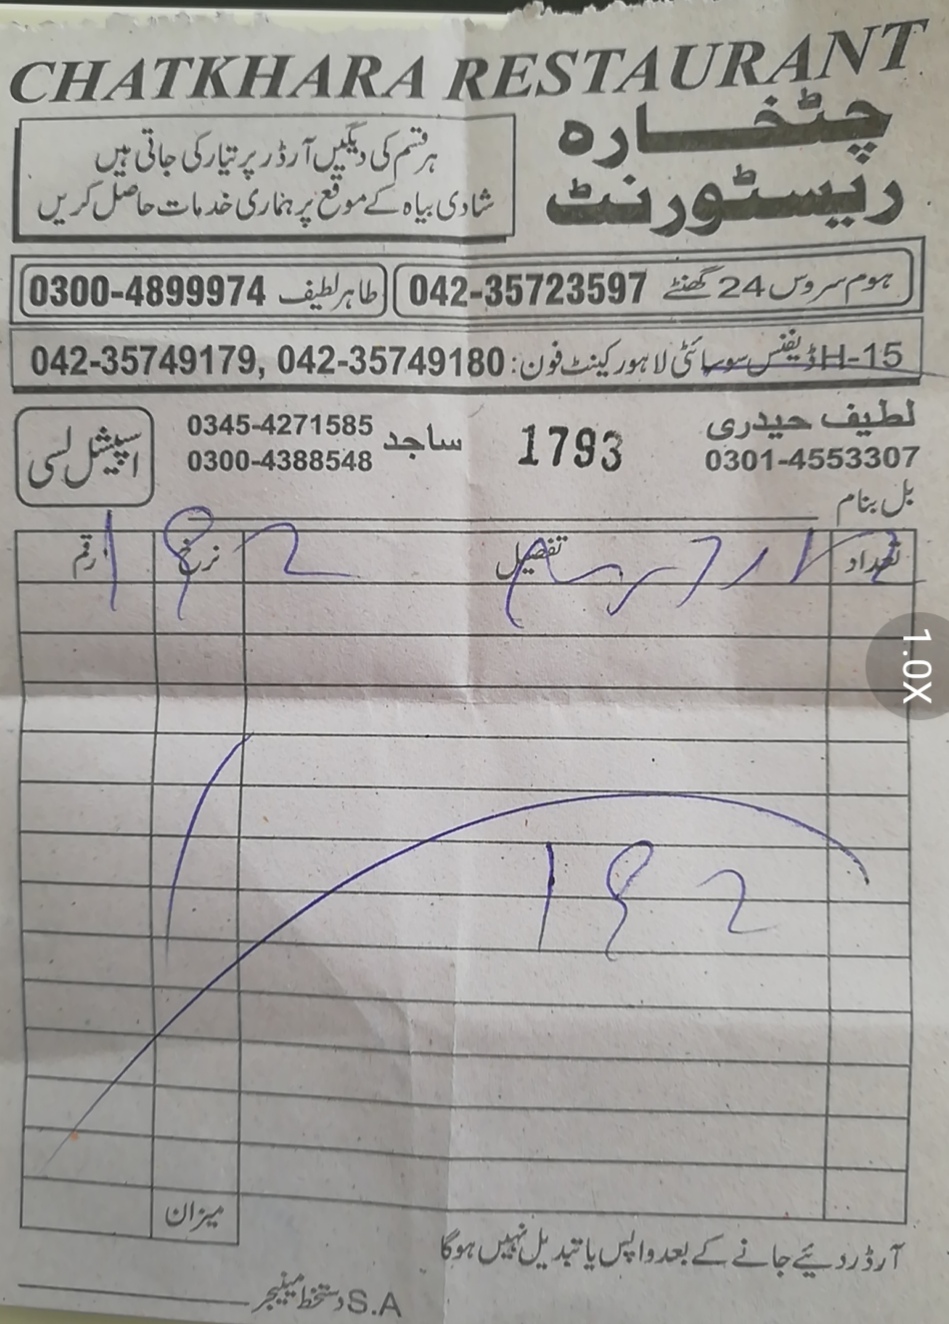 CHATKHARA RESTAURANT
چٹخارہ
ریسٹورنٹ
ہر قسم کی دیگیں آرڈر پر تیار کی جاتی ہیں
شادی بیاہ کے موقع پر ہماری خدمات حاصل کریں
ہوم سروس 24 گھنٹے 042-35723597
طاہر لطیف 0300-4899974
H-15 ڈیفنس سوسائٹی لاہور کینٹ فون: 042-35749179, 042-35749180
لطیف حیدری
0301-4553307
1793
ساجد 0345-4271585
0300-4388548
اسپیشل لسی
بل بنام
تعداد تفصیل نرخ رقم
میزان
آرڈر دئیے جانے کے بعد واپس یا تبدیل نہیں ہوگا
S.A دستخط مینیجر
1.0X